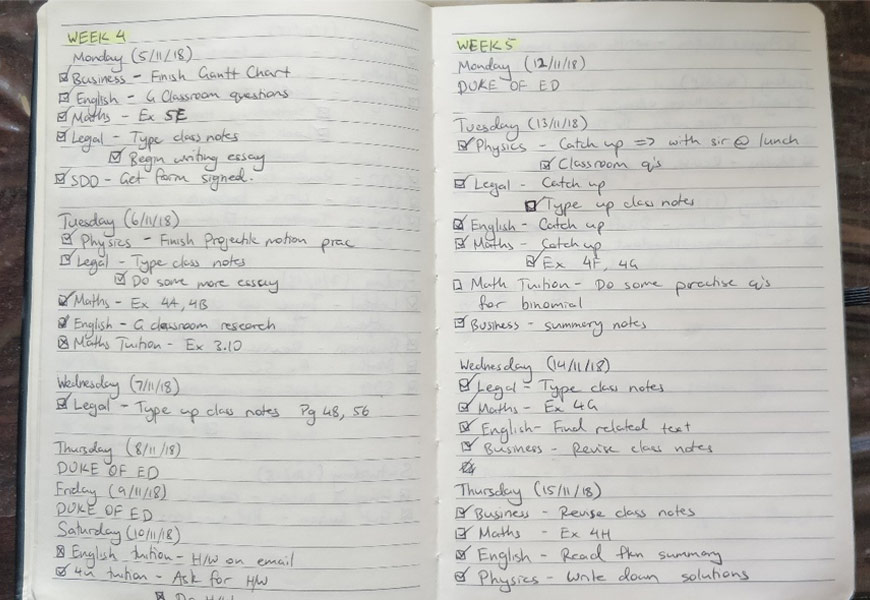 WEEK 4
Monday (5/11/18)
Business - Finish Gantt Chart
English - G Classroom questions
Maths - Ex 5E
Legal - Type class notes
Begin writing essay
SDD - Get form signed.
Tuesday (6/11/18)
Physics - Finish Projectile motion prac
Legal - Type class notes
Do some more essay
Maths - Ex 4A, 4B
English - G classroom research
Maths Tuition - Ex 3.10
Wednesday (7/11/18)
Legal - Type up class notes Pg 48, 56
Thursday (8/11/18)
DUKE OF ED
Friday (9/11/18)
DUKE OF ED
Saturday (10/11/18)
English tuition - H/W on email
4u tuition - Ask for H/W
Do H/W
WEEK 5
Monday (12/11/18)
DUKE OF ED
Tuesday (13/11/18)
Physics - Catch up => with sir @ lunch
Classroom q's
Legal - Catch up
Type up class notes
English - Catch up
Maths - Catch up
Ex 4F, 4G
Math Tuition - Do some practise q's
for binomial
Business - summary notes
Wednesday (14/11/18)
Legal - Type class notes
Maths - Ex 4G
English - Find related text
Business - Revise class notes
Thursday (15/11/18)
Business - Revise class notes
Maths - Ex 4H
English - Read summary
Physics - Write down solutions